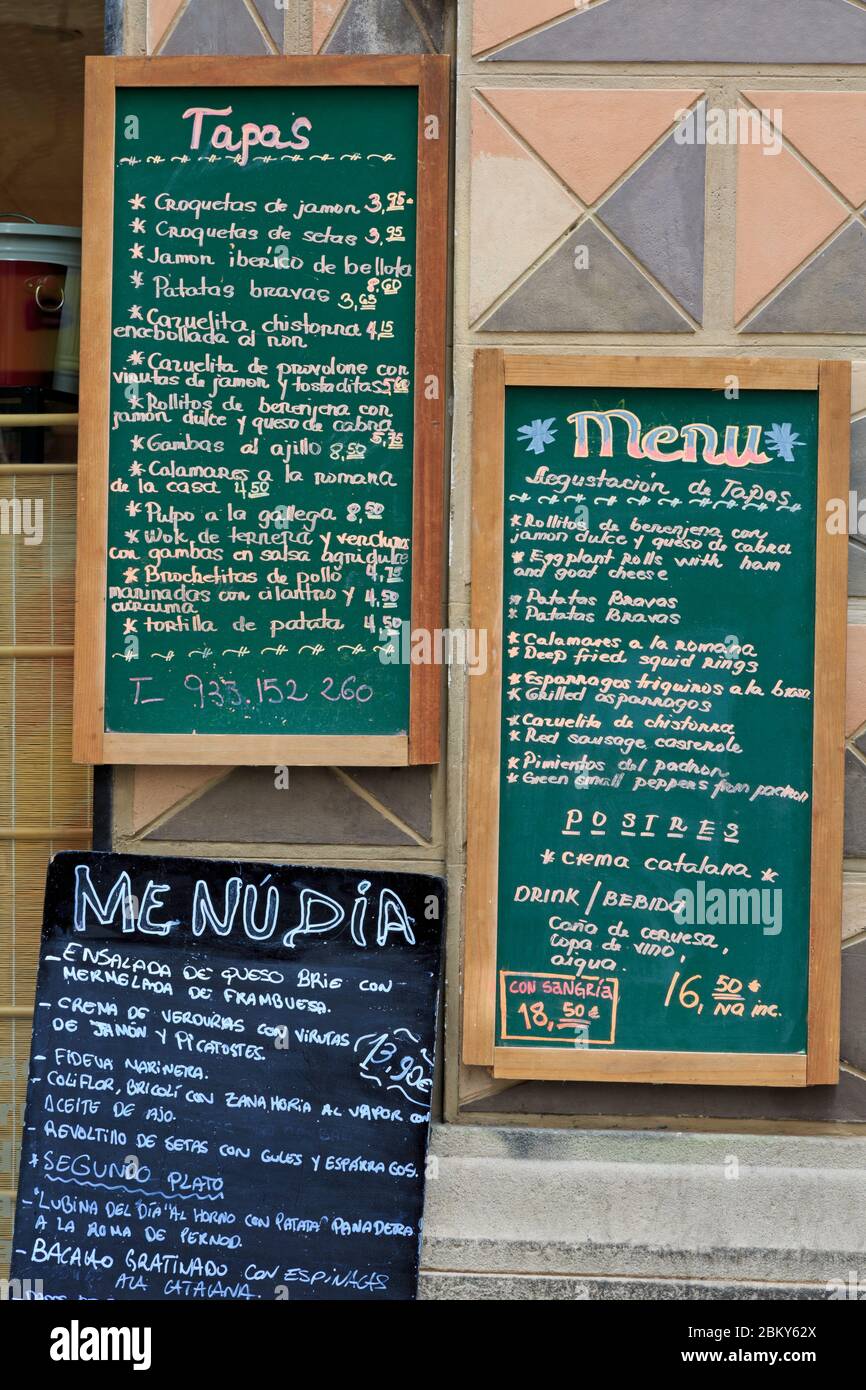 Tapas
* Croquetas de jamon 3,95 €
* Croquetas de setas 3,95
* Jamon iberico de bellota
8.60
* Patatas bravas 3,65
* Cazuelita chistorra 4,15
encebollada al ron
* Cazuelita de provolone con
virutas de jamon y tostaditas 5,60
* Rollitos de berenjena con
jamon dulce y queso de cabra
5,75
* Gambas al ajillo 8,50
* Calamares a la romana
de la casa 4,50
* Pulpo a la gallega 8,50
* Wok de ternera y verduras
con gambas en salsa agridulce
4,75
* Brochetitas de pollo
marinadas con cilantro y 4,50
curcuma
* tortilla de patata 4,50
T_ 933.152 260
Menu
Degustación de Tapas
* Rollitos de berenjena con
jamon dulce y queso de cabra
* Eggplant rolls with ham
and goat cheese
* Patatas Bravas
* Patatas Bravas
* Calamares a la romana
* Deep fried squid rings
* Esparragos triguiros a la brasa
* Grilled asparragos
* Cazuelito de chistorra
* Red sausage casserole
* Pimientos del padron
* Green small peppers from padron
POSTRES
* Crema catalana *
DRINK / BEBIDA
Caña de cervesa,
copa de vino,
aigua.
CON SANGRIA
18,50 €
16,50 €
iva inc.
MENÚ DÍA
- ENSALADA DE QUESO BRIE CON
MERMELADA DE FRAMBUESA.
- CREMA DE VERDURAS CON VIRUTAS
DE JAMÓN Y PICATOSTES.
13,90€
- FIDEVA MARINERA.
- COLIFLOR, BRICOLÍ CON ZANAHORIA AL VAPOR CON
ACEITE DE AJO.
- REVOLTILLO DE SETAS CON GULES Y ESPÁRRAGOS.
* SEGUNDO PLATO
- "LUBINA DEL DÍA" AL HORNO CON PATATA PANADETRA
A LA ROMA DE PERNOD.
- BACALAO GRATINADO CON ESPINACAS
A LA CATALANA.
alamy
Image ID: 2BKY62X
www.alamy.com